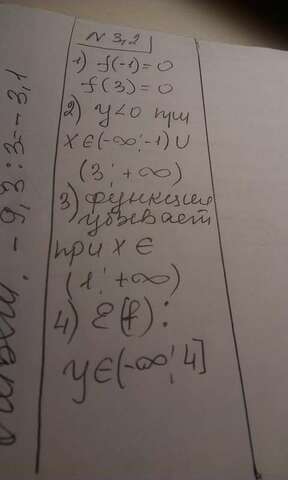 N 3,2
1) f(-1)=0
f(3)=0
2) y<0 при
x∈(-∞;-1)∪
(3;+∞)
3) функция
убывает
при x∈
(1;+∞)
4) E(f):
y∈(-∞;4]
-9,3:3=-3,1